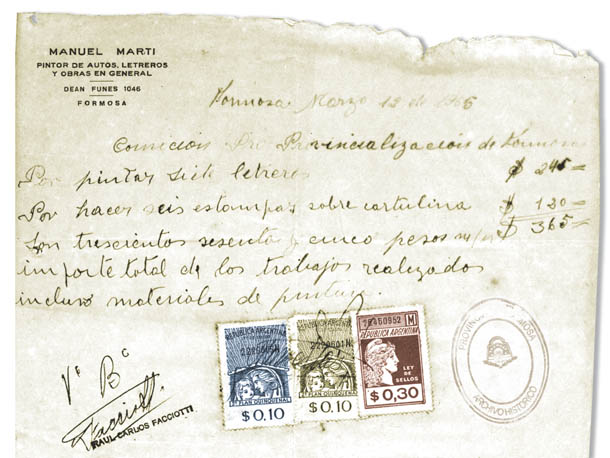 MANUEL MARTI
PINTOR DE AUTOS, LETREROS
Y OBRAS EN GENERAL
DEAN FUNES 1046
FORMOSA
Formosa Marzo 12 de 1955
Comición Pro Provincialización de Formosa
Por pintar siete letreros $ 245=
Por hacer seis estampas sobre cartulina $ 120=
$ 365=
Son trescientos sesenta y cinco pesos m/n
importe total de los trabajos realizados
incluso materiales de pintura.
Vº Bº
RAUL CARLOS FACCIOTTI
REPUBLICA ARGENTINA
2º PLAN QUINQUENAL
$ 0.10
REPUBLICA ARGENTINA
2º PLAN QUINQUENAL
$ 0.10
M
REPUBLICA ARGENTINA
LEY DE
SELLOS
$ 0,30
PROVINCIA DE FORMOSA
ARCHIVO HISTORICO